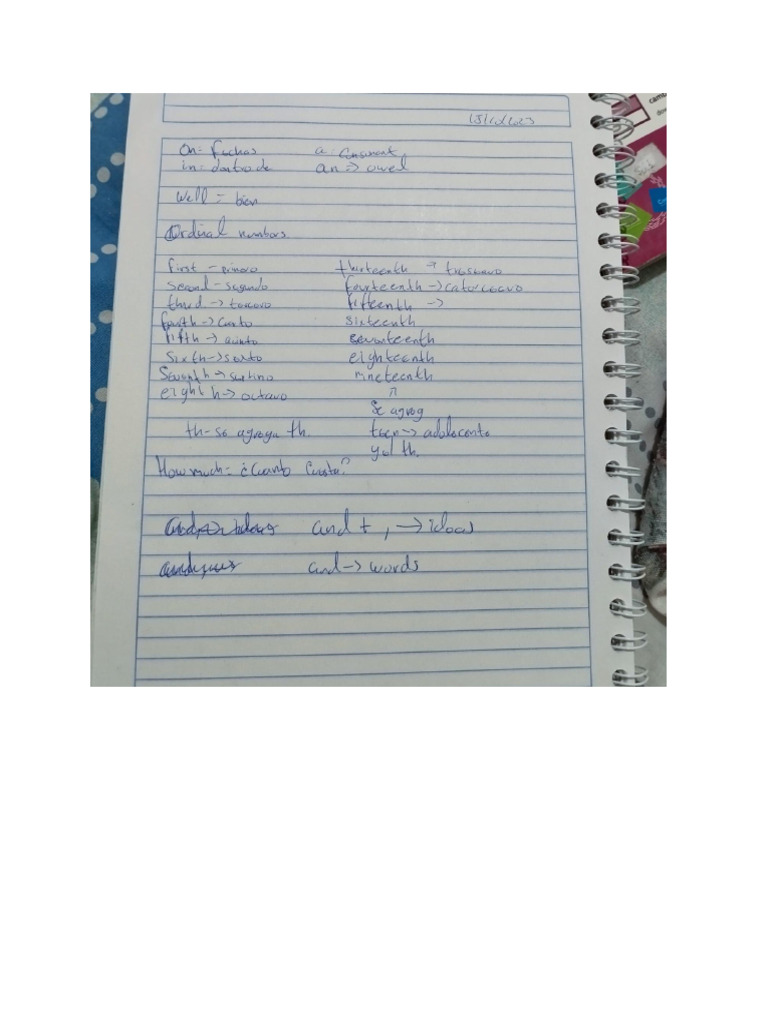 On = fechas a: Consonant
in = dentro de an => owel
Well = bien
Ordinal numbers
first - primero thirteenth -> treceavo
Second - segundo fourteenth -> catorceavo
third -> tercero fifteenth ->
fourth -> cuarto sixteenth
fifth -> quinto seventeenth
Sixth -> sexto eighteenth
Seventh -> septimo nineteenth
eighth -> octavo
Se agreg
th - se agrega th. teen -> adolecente
y el th.
How much = ¿Cuanto Cuesta?
and + , -> ideas
and -> words